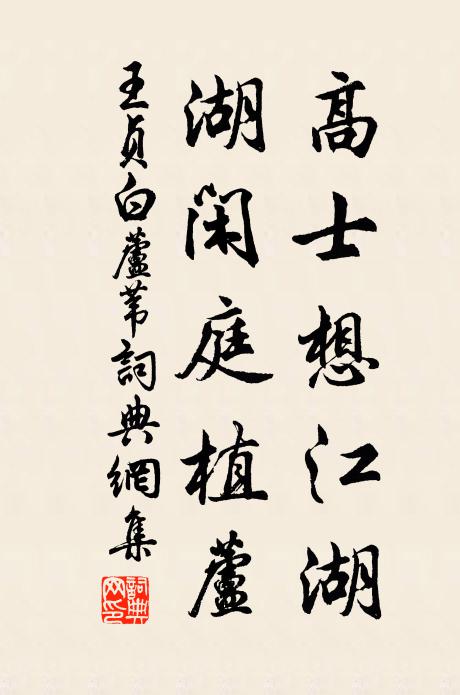 高士想江湖
湖闲庭植蘆
王貞白蘆葦詞典網集
詞典網印